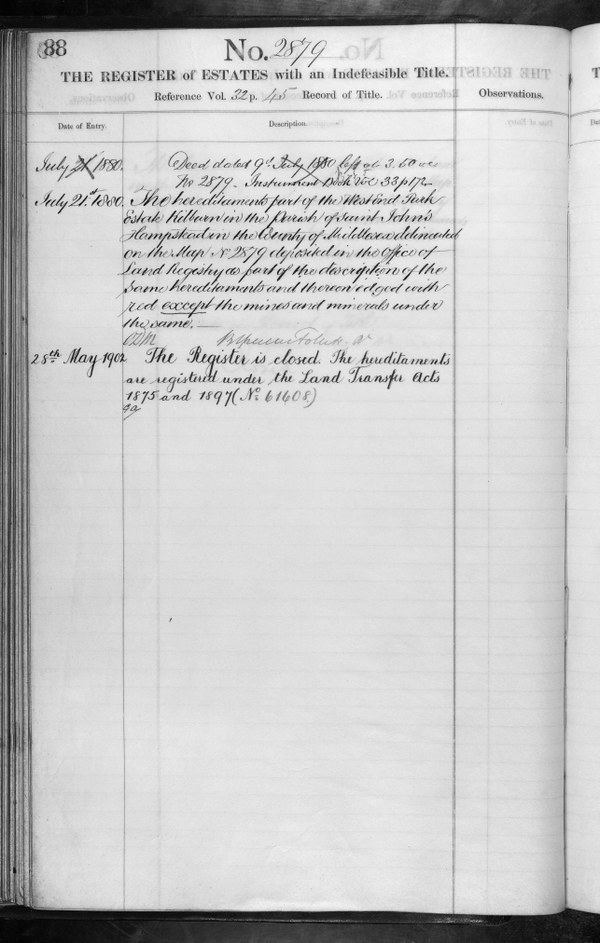 88
No. 2879
THE REGISTER of ESTATES with an Indefeasible Title.
Reference Vol. 32 p. 45 Record of Title.
Observations.
Date of Entry.
Description.
July 21 1880. Deed dated 9th July 1880 left at 3.50 o'c
No 2879. Instrument Book Vol 33 p 172
July 21st 1880. The hereditaments part of the West End Park
Estate Kilburn in the Parish of Saint John's
Hampstead in the County of Middlesex delineated
on the Map No 2879 deposited in the Office of
Land Registry as part of the description of the
same hereditaments and thereon edged with
red except the mines and minerals under
the same.
28th May 1902 The Register is closed. The hereditaments
are registered under the Land Transfer Acts
1875 and 1897 (No 61608)